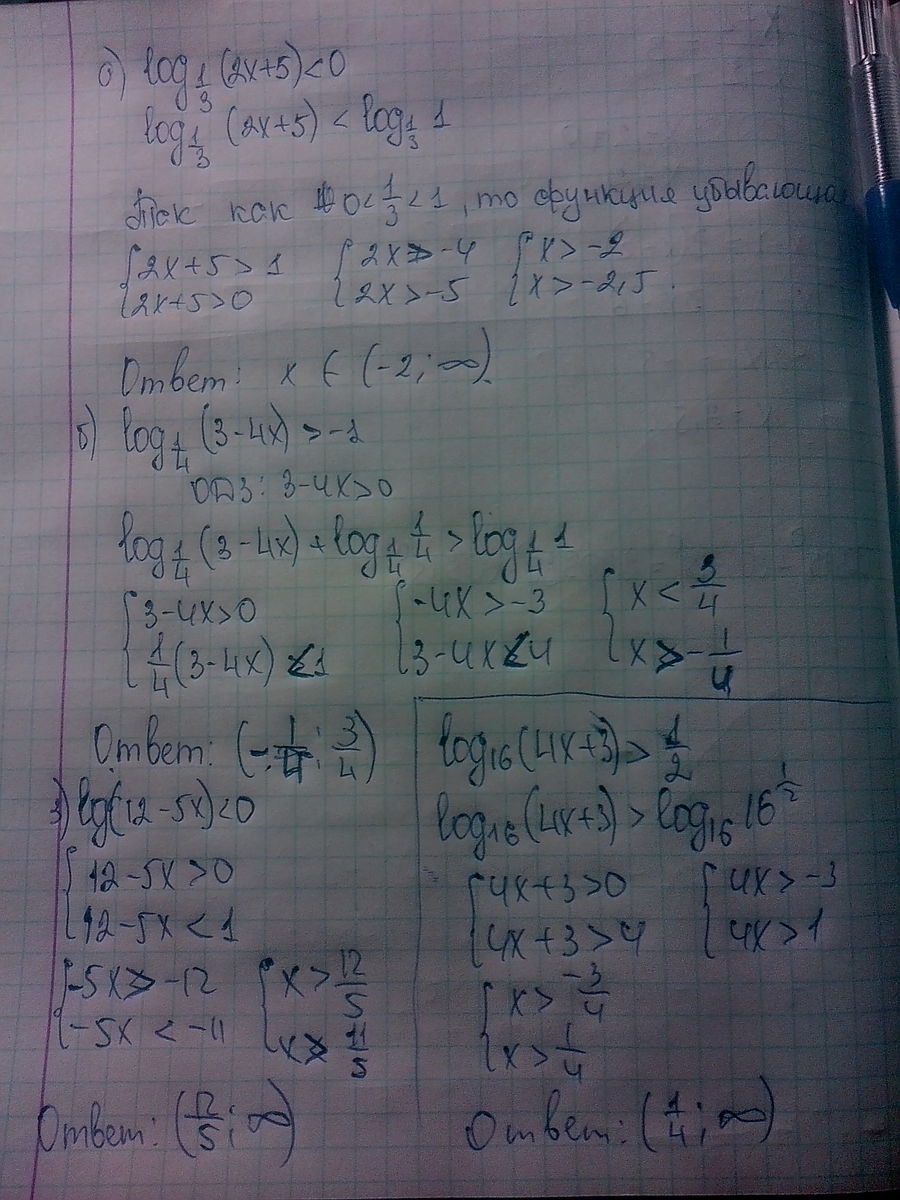 а) log_{1/3} (2x+5)<0
log_{1/3} (2x+5) < log_{1/3} 1
Так как 0<1/3<1, то функция убывающая
{2x+5>1 {2x>-4 {x>-2
{2x+5>0 {2x>-5 {x>-2,5.
Ответ: x ∈ (-2; ∞).
б) log_{1/4} (3-4x) >-1
ОДЗ: 3-4x>0
log_{1/4} (3-4x) + log_{1/4} 1/4 > log_{1/4} 1
{3-4x>0 {-4x>-3 {x < 3/4
{1/4(3-4x) <1 {3-4x<4 {x>-1/4
Ответ: (-1/4; 3/4)
3) lg(12-5x)<0
{12-5x>0
{12-5x<1
{-5x>-12 {x>12/5
{-5x<-11 {x>11/5
Ответ: (12/5; ∞)
log_{16} (4x+3)>1/2
log_{16} (4x+3)>log_{16} 16^{1/2}
{4x+3>0 {4x>-3
{4x+3>4 {4x>1
{x>-3/4
{x>1/4
Ответ: (1/4; ∞)